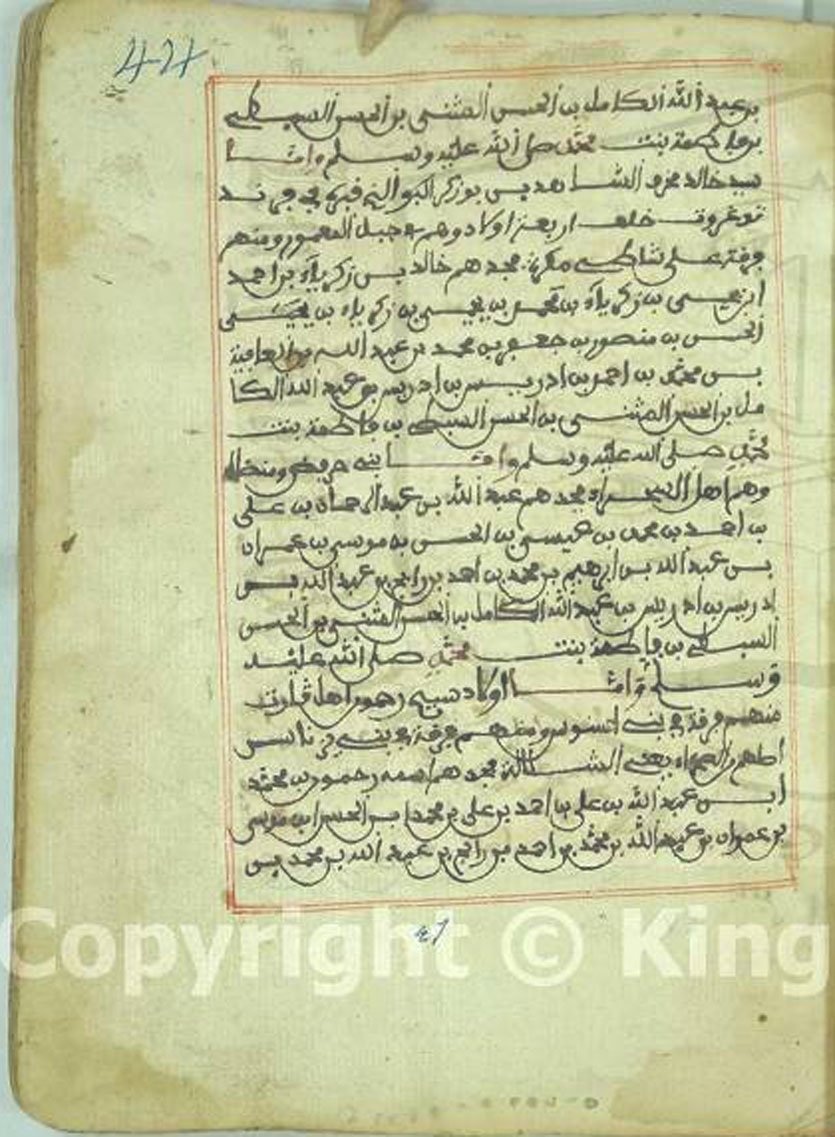 424
بن عبد الله الكامل بن الحسن المثنى بن الحسن السبط
بن فاطمة بنت محمد صلى الله عليه وسلم واما
سيد خالد
خلف اربعة اولاد وهم في جبل المعمور ومنهم
فرقة على شاطئ جدهم خالد بن زكرياء بن احمد
ابن يحيى بن زكرياء بن محمد بن يحيى بن زكرياء بن يحيى
الحسن بن منصور بن جعفر بن محمد بن عبد الله بن العافية
بن محمد بن احمد بن ادريس بن ادريس بن عبد الله الكا
مل بن الحسن المثنى بن الحسن السبط بن فاطمة بنت
محمد صلى الله عليه وسلم واما بني
وهم اهل الصحراء جدهم عبد الله بن عبد الرحمان بن علي
بن احمد بن محمد بن عيسى بن الحسن بن موسى بن عمران
بن عبد الله بن ابرهيم بن محمد بن احمد بن راجح بن عبد الله بن
ادريس بن ادريس بن عبد الله الكامل بن الحسن المثنى بن الحسن
السبط بن فاطمة بنت محمد صلى الله عليه
وسلم واما اولاد سيد رحمون اهل
منهم فرقة في بني ومنهم فرقة في بني يزناسن
اصلهم من الصحراء يعني جدهم اسمه رحمون بن محمد
ابن عبد الله بن علي بن احمد بن علي بن محمد بن الحسن ابن موسى
بن عمران بن عبد الله بن محمد بن احمد بن راجح بن عبد الله بن محمد بن
Copyright © King